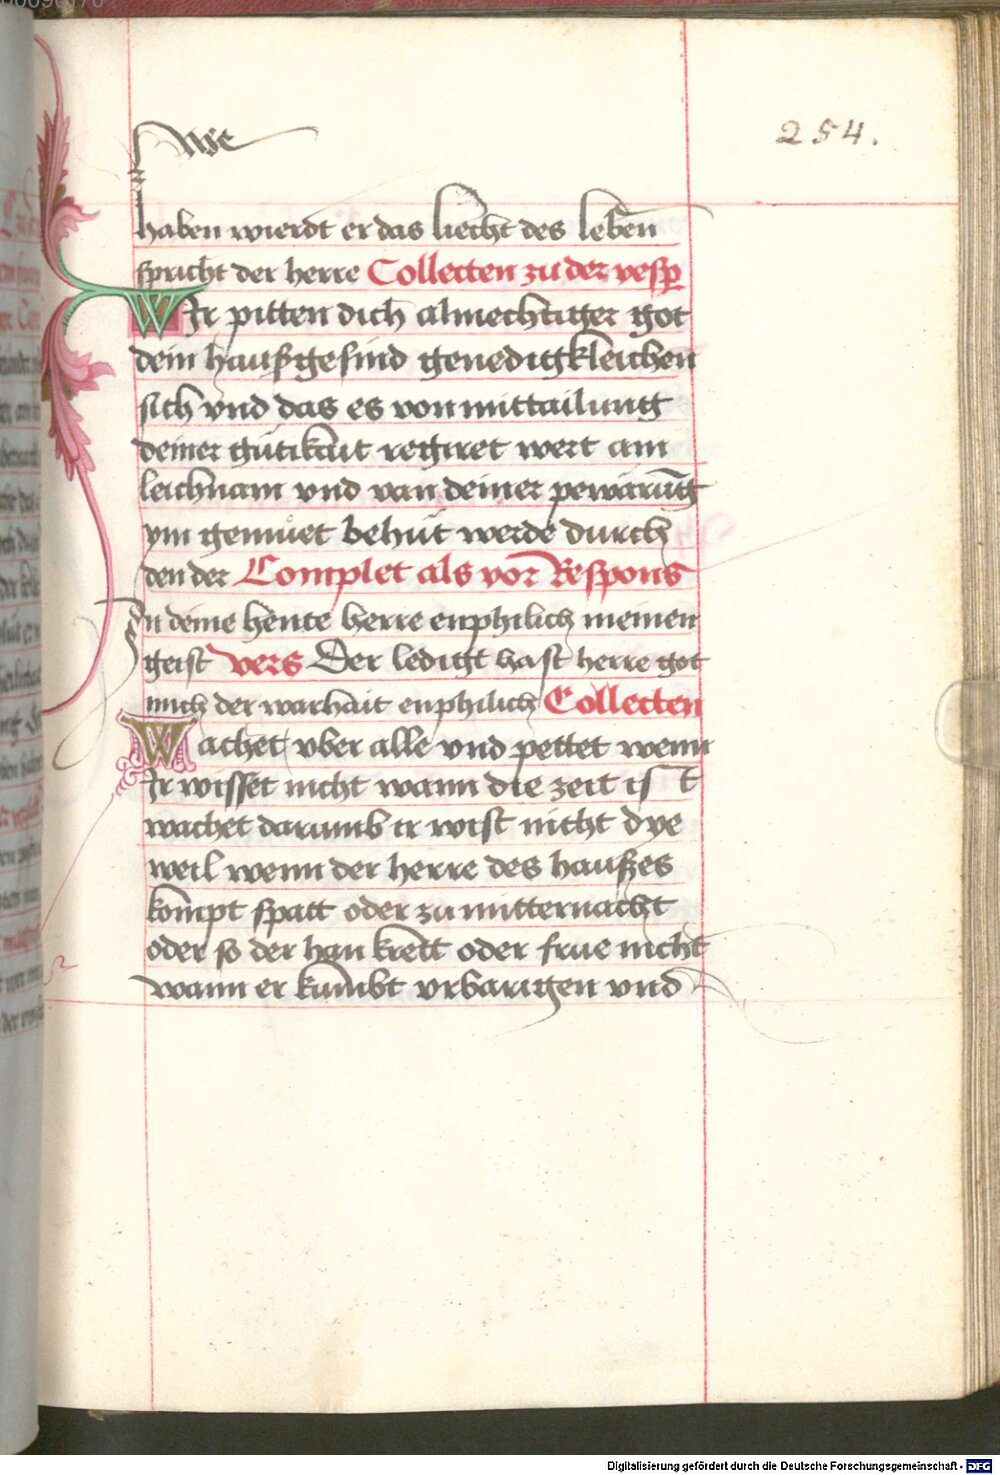 254.
haben wierdt er das liecht des leben
spricht der herre Collecten zu der vesp
WIr pitten dich almechtiger got
dein haußgesind genedigkleichen
sich vnd das es von mittailung
deiner gütikait regiret wert am
leichnam vnd van deiner pewarūg
ym gemüet behüt werde durch
den der Complet als vor Respons
In deine hente herre enphilich meinen
geist vers Der ledigt hast herre got
mich der warhait enphilich Collecten
Wachet vber alle vnd pettet wenn
Ir wisset nicht wann die zeit ist
wachet darumb ir wist nicht dye
weil wenn der herre des haußes
kompt spatt oder zu mitternacht
oder so der han krett oder frue nicht
wann er kumbt vrbarigen vnd
Digitalisierung gefördert durch die Deutsche Forschungsgemeinschaft - DFG